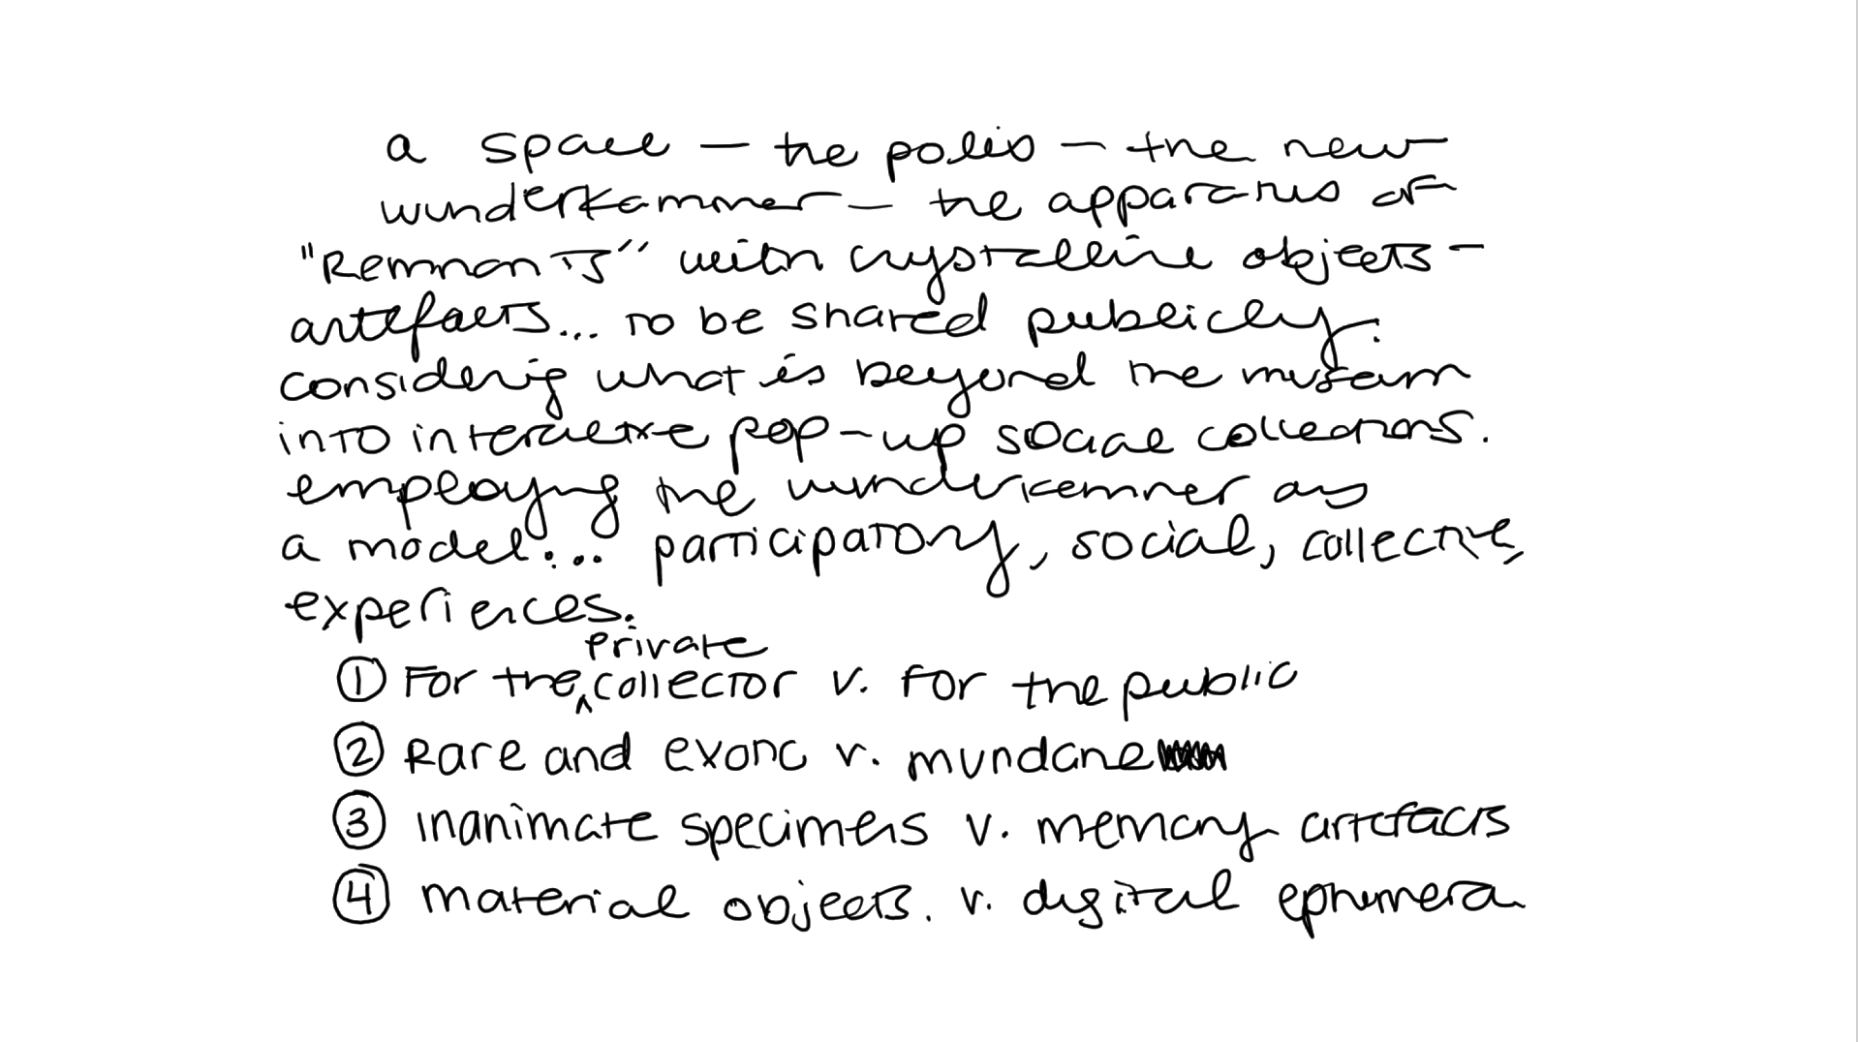 a space – the polis – the new
wunderkammer – the apparatus of
"Remnants" with crystalline objects –
artefacts... to be shared publicly.
considering what is beyond the museum
into interactive pop-up social collections.
employing the wunderkammer as
a model... participatory, social, collective,
experiences.
① For the private collector v. for the public
② Rare and exotic v. mundane
③ inanimate specimens v. memory artefacts
④ material objects. v. digital ephemera